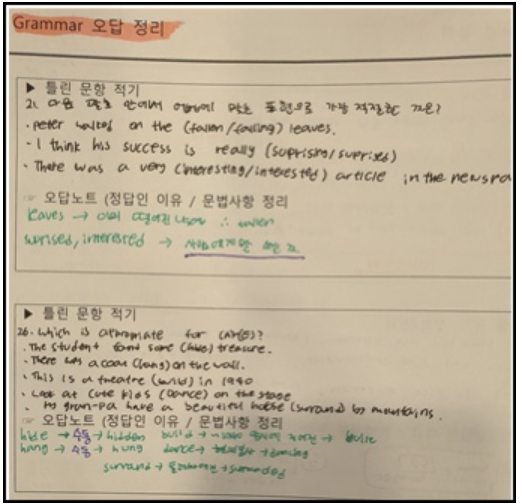 Grammar 오답 정리
▶ 틀린 문항 적기
21. 다음 괄호 안에서 어법에 맞는 표현으로 가장 적절한 것은?
· peter walked on the (fallen/falling) leaves.
· I think his success is really (suprising/suprised)
· There was a very (interesting/interested) article in the newspa
☞ 오답노트 (정답인 이유 / 문법사항 정리
leaves → 이미 떨어진 나뭇잎 ∴ fallen
surised, interested → 사람에게만 쓰는 것
▶ 틀린 문항 적기
26. which is apropriate for (A)~(E)?
· The student found some (hide) treasure.
· There was a coat (hang) on the wall.
· This is a theatre (build) in 1940
· Look at cute kids (Dance) on the stage
· My gran-pa have a beautiful house (surround) by mountains.
☞ 오답노트 (정답인 이유 / 문법사항 정리
hide → 수동 → hidden build → 1940 지어진 → built
hang → 수동 → hung dance → → dancing
surround → → surrounded